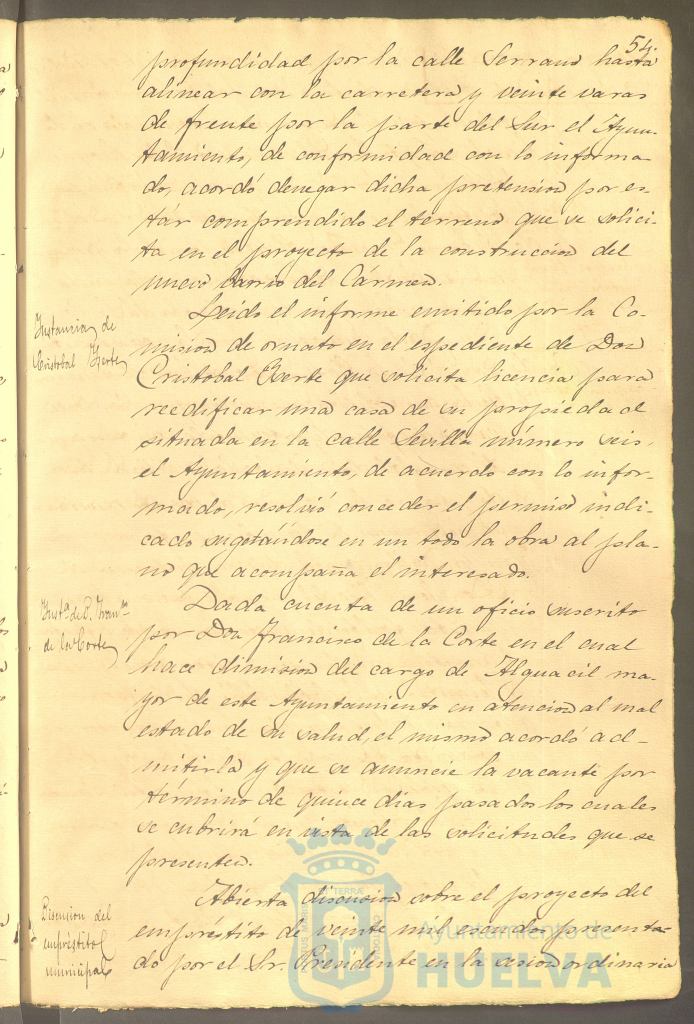 54.
profundidad por la calle Serrano hasta
alinear con la carretera y veinte varas
de frente por la parte del Sur el Ayun-
tamiento, de conformidad con lo informa-
do, acordó denegar dicha pretension por es-
tár comprendido el terreno que se solici-
ta en el proyecto de la construccion del
nuevo barrio del Cármen.
Instancia de
Cristobal
Leido el informe emitido por la Co-
mision de ornato en el espediente de Don
Cristobal que solicita licencia para
reedificar una casa de su propiedad
situada en la calle Sevilla número seis,
el Ayuntamiento, de acuerdo con lo infor-
mado, resolvió conceder el permiso indi-
cado sugetándose en un todo la obra al pla-
no que acompaña el interesado.
Insta. de D. Fran.co
de la Corte
Dada cuenta de un oficio suscrito
por Don Francisco de la Corte en el cual
hace dimision del cargo de Alguacil ma-
yor de este Ayuntamiento en atencion al mal
estado de su salud, el mismo acordó ad-
mitirla y que se anuncie la vacante por
término de quince dias pasados los cuales
se cubrirá en vista de las solicitudes que se
presenten.
Discusion del
empréstito
municipal
Abierta discusion sobre el proyecto del
empréstito de veinte mil escudos presenta-
do por el Sr. Presidente en la sesion ordinaria
Ayuntamiento de
HUELVA